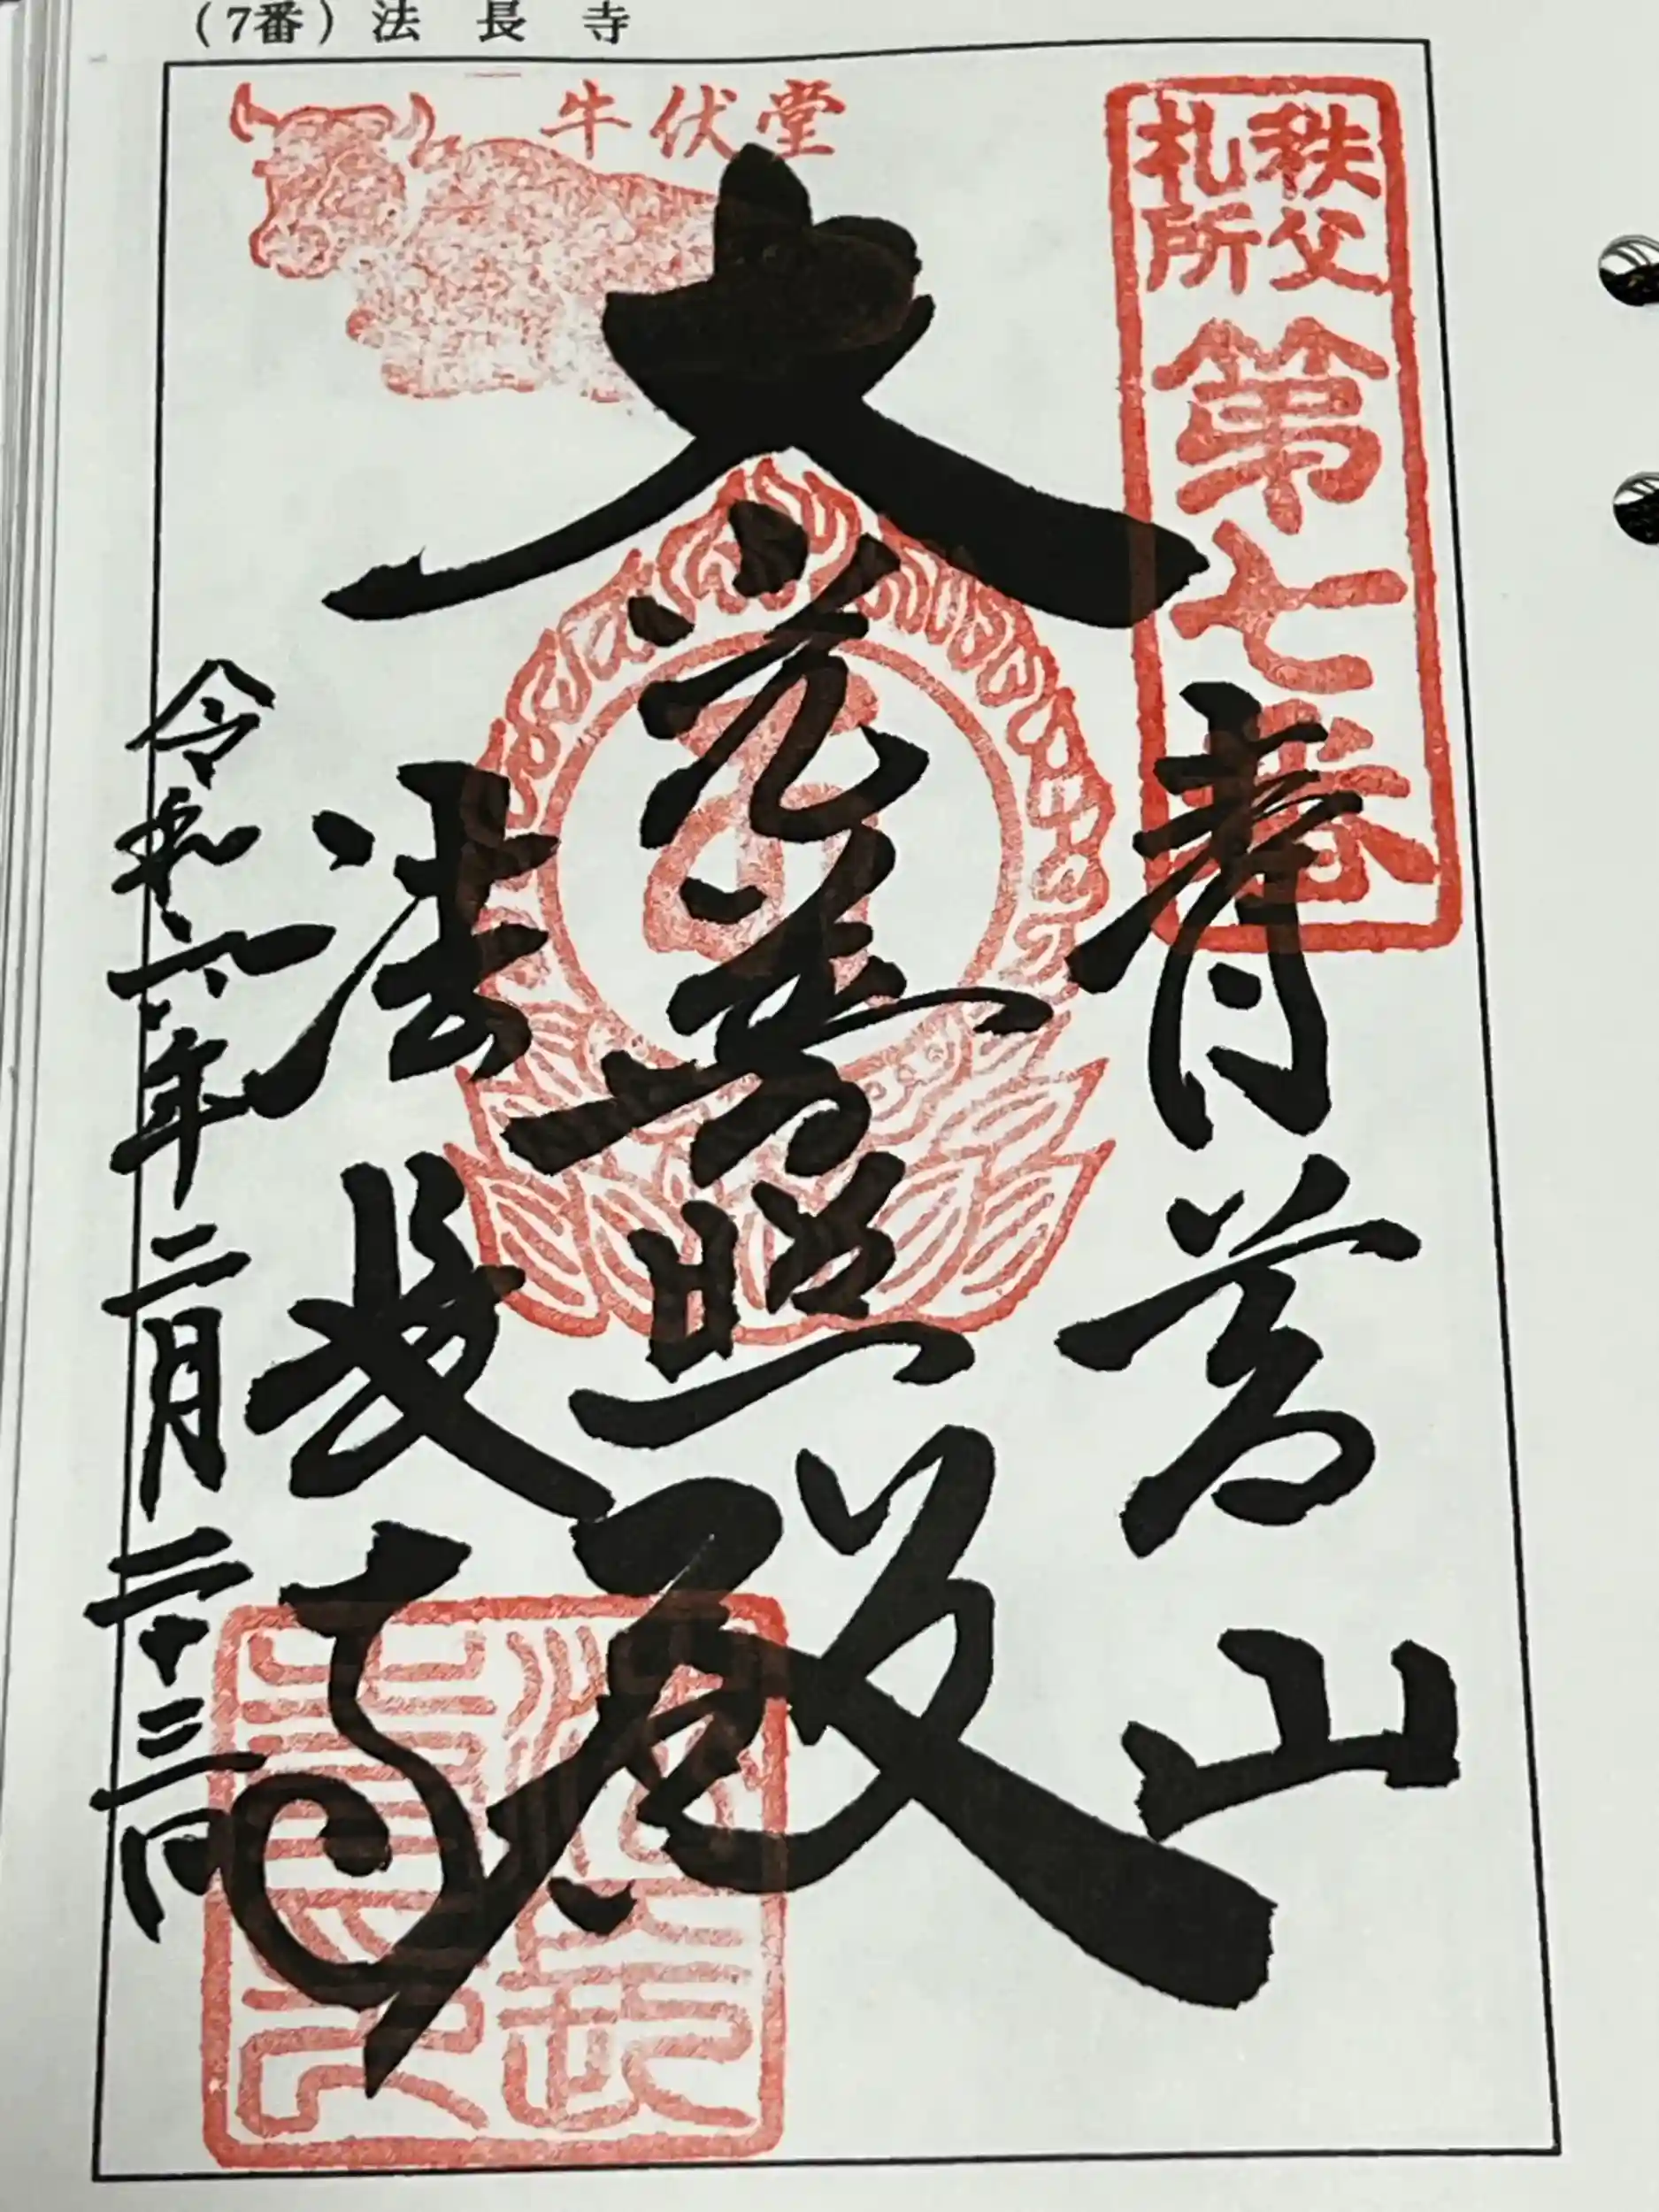 (7番) 法長寺
牛伏堂
秩父
札所
第七番
青苔山
大光普照殿
法長寺
令和六年二月二十三日